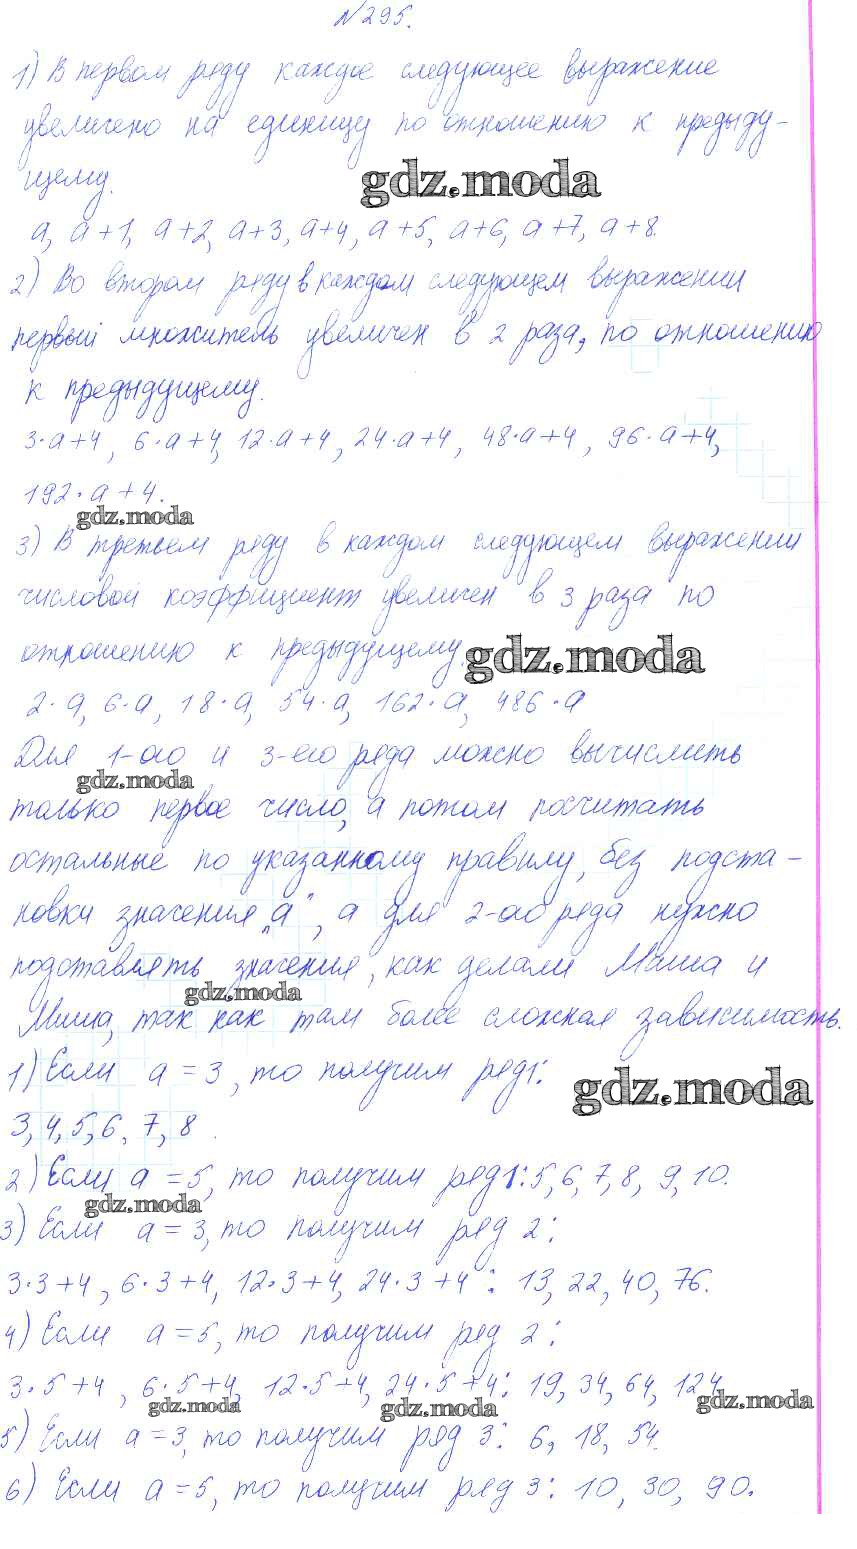 №295.
1) В первом ряду каждое следующее выражение
увеличено на единицу по отношению к предыду-
щему.
gdz.moda
a, a+1, a+2, a+3, a+4, a+5, a+6, a+7, a+8.
2) Во втором ряду в каждом следующем выражении
первый множитель увеличен в 2 раза, по отношению
к предыдущему.
3·a+4, 6·a+4, 12·a+4, 24·a+4, 48·a+4, 96·a+4,
192·a+4.
gdz.moda
3) В третьем ряду в каждом следующем выражении
числовой коэффициент увеличен в 3 раза по
отношению к предыдущему.
gdz.moda
2·a, 6·a, 18·a, 54·a, 162·a, 486·a
Для 1-ого и 3-его ряда можно вычислить
gdz.moda
только первое число, а потом посчитать
остальные по указанному правилу, без подста-
новки значения „a", а для 2-ого ряда нужно
подставлять значения, как делали Миша и
gdz.moda
Миша, так как там более сложная зависимость.
1) Если a = 3, то получим ряд1:
gdz.moda
3, 4, 5, 6, 7, 8.
2) Если a = 5, то получим ряд1: 5, 6, 7, 8, 9, 10.
gdz.moda
3) Если a = 3, то получим ряд 2:
3·3+4, 6·3+4, 12·3+4, 24·3+4: 13, 22, 40, 76.
4) Если a = 5, то получим ряд 2:
3·5+4, 6·5+4, 12·5+4, 24·5+4: 19, 34, 64, 124
gdz.moda gdz.moda gdz.moda
5) Если a = 3, то получим ряд 3: 6, 18, 54.
6) Если a = 5, то получим ряд 3: 10, 30, 90.